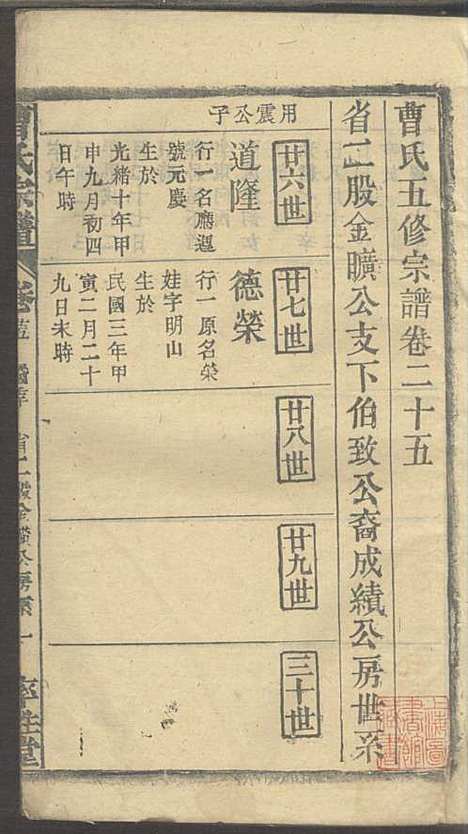 曹氏五修宗譜卷二十五
省二股金曠公支下伯致公裔成績公房世系
用震公子
廿六世
道隆
行一名應遲
號元慶
生於
光緒十年甲
申九月初四
日午時
廿七世
德榮
行一原名榮
娃字明山
生於
民國三年甲
寅二月二十
九日未時
廿八世
廿九世
三十世
曹氏宗譜